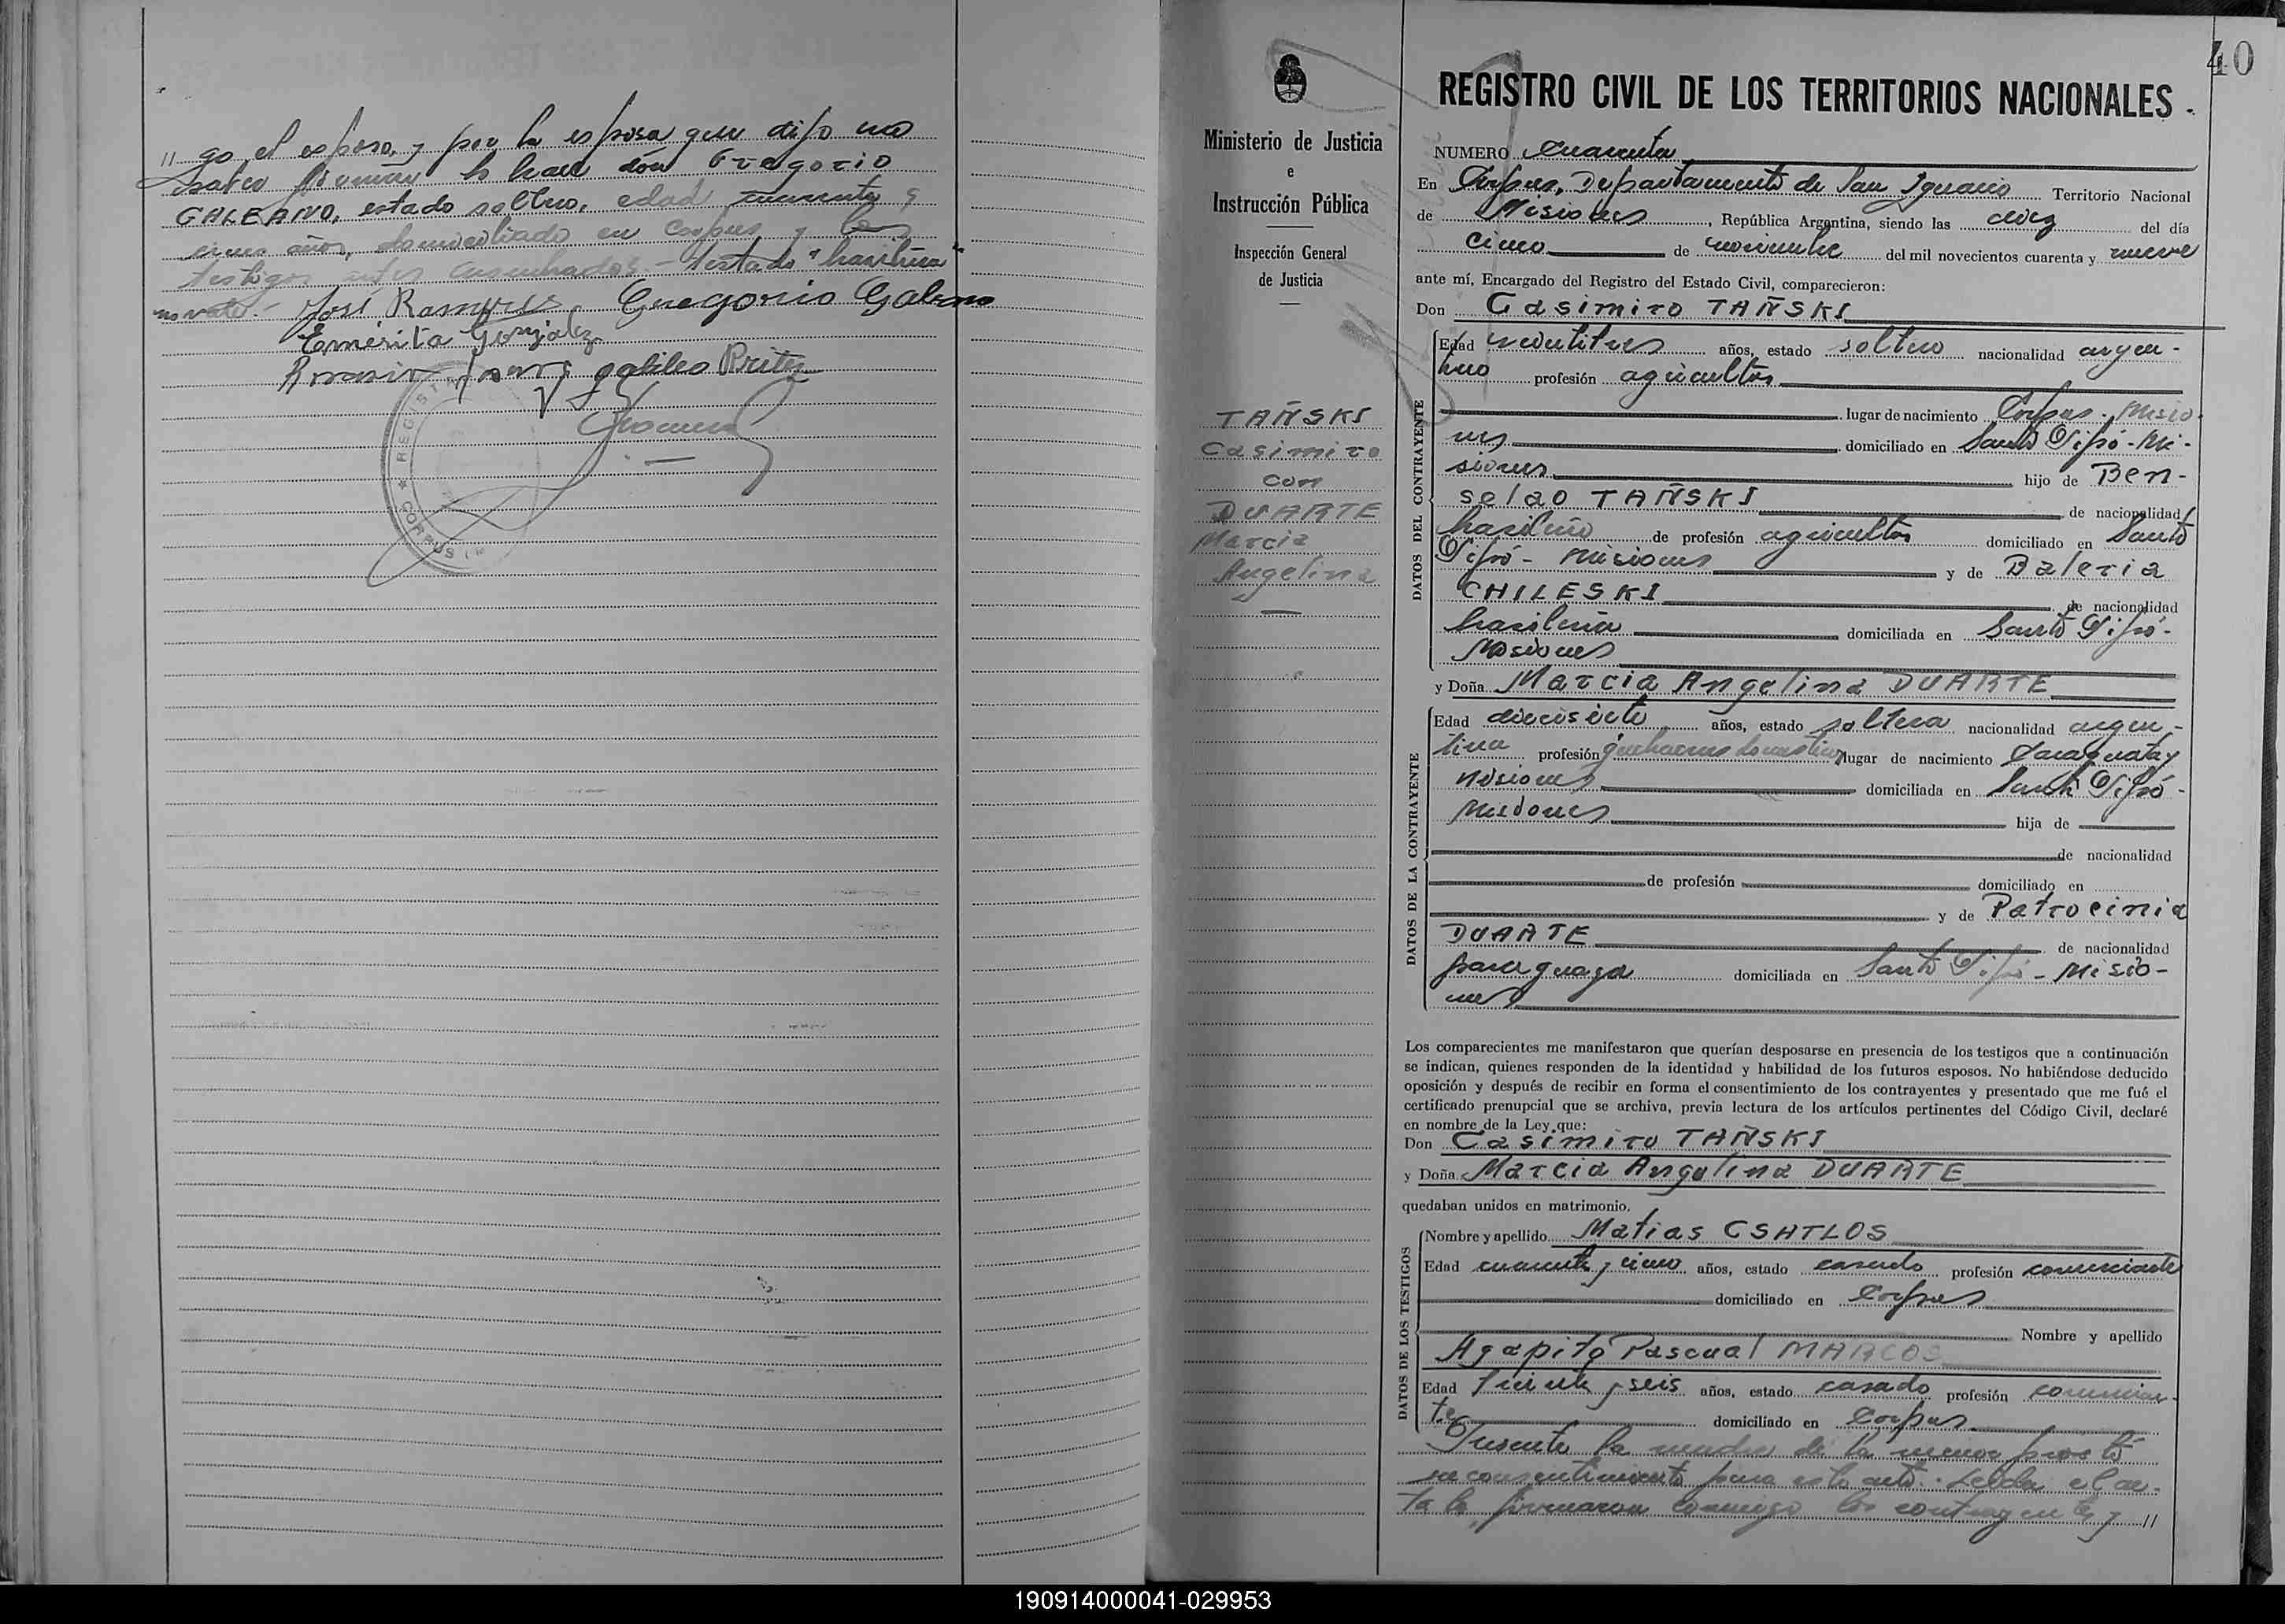 " go el esposo, y por la esposa que dijo no
saber firmar lo hace don Gregorio
GALEANO, estado soltero, edad cuarenta y
cinco años, domiciliado en Corpus y los
testigos antes enunciados - Testado "brasilera"
no vale.- José Ramires Gregorio Galeano
Emerita Gonzalez
galileo Britez
REGISTRO
CORPUS (M
40
Ministerio de Justicia
e
Instrucción Pública
Inspección General
de Justicia
TAÑSKI
Casimiro
con
DUARTE
Marcia
Angelina
REGISTRO CIVIL DE LOS TERRITORIOS NACIONALES
NUMERO Cuarenta
En Corpus, Departamento de San Ignacio Territorio Nacional
de Misiones, República Argentina, siendo las diez del día
cinco de noviembre del mil novecientos cuarenta y nueve
ante mí, Encargado del Registro del Estado Civil, comparecieron:
Don Casimiro TAÑSKI
DATOS DEL CONTRAYENTE
Edad veintitres años, estado soltero nacionalidad argen-
tino profesión agricultor
lugar de nacimiento Corpus - Misio-
nes domiciliado en Santo Pipó - Mi-
siones hijo de Ben-
selao TAÑSKI de nacionalidad
brasileño de profesión agricultor domiciliado en Santo
Pipó - Misiones y de Baleria
CHILESKI de nacionalidad
brasileña domiciliada en Santo Pipó -
Misiones
y Doña Marcia Angelina DUARTE
DATOS DE LA CONTRAYENTE
Edad diecisiete años, estado soltera nacionalidad argen-
tina profesión quehaceres domesticos lugar de nacimiento Caraguatay
Misiones domiciliada en Santo Pipó -
Misiones hija de
de nacionalidad
de profesión domiciliado en
y de Patrocinia
DUARTE de nacionalidad
paraguaya domiciliada en Santo Pipó - Misio-
nes
Los comparecientes me manifestaron que querían desposarse en presencia de los testigos que a continuación
se indican, quienes responden de la identidad y habilidad de los futuros esposos. No habiéndose deducido
oposición y después de recibir en forma el consentimiento de los contrayentes y presentado que me fué el
certificado prenupcial que se archiva, previa lectura de los artículos pertinentes del Código Civil, declaré
en nombre de la Ley, que:
Don Casimiro TAÑSKI
y Doña Marcia Angelina DUARTE
quedaban unidos en matrimonio.
DATOS DE LOS TESTIGOS
Nombre y apellido Matias CSATLOS
Edad cuarenta y cinco años, estado casado profesión comerciante
domiciliado en Corpus
Nombre y apellido
Agapito Pascual MARCOS
Edad treinta y seis años, estado casado profesión comercian-
te domiciliado en Corpus
Presente la madre de la menor prestó
su consentimiento para este acto. Leida el ac-
ta la firmaron conmigo los contrayentes y //
190914000041-029953